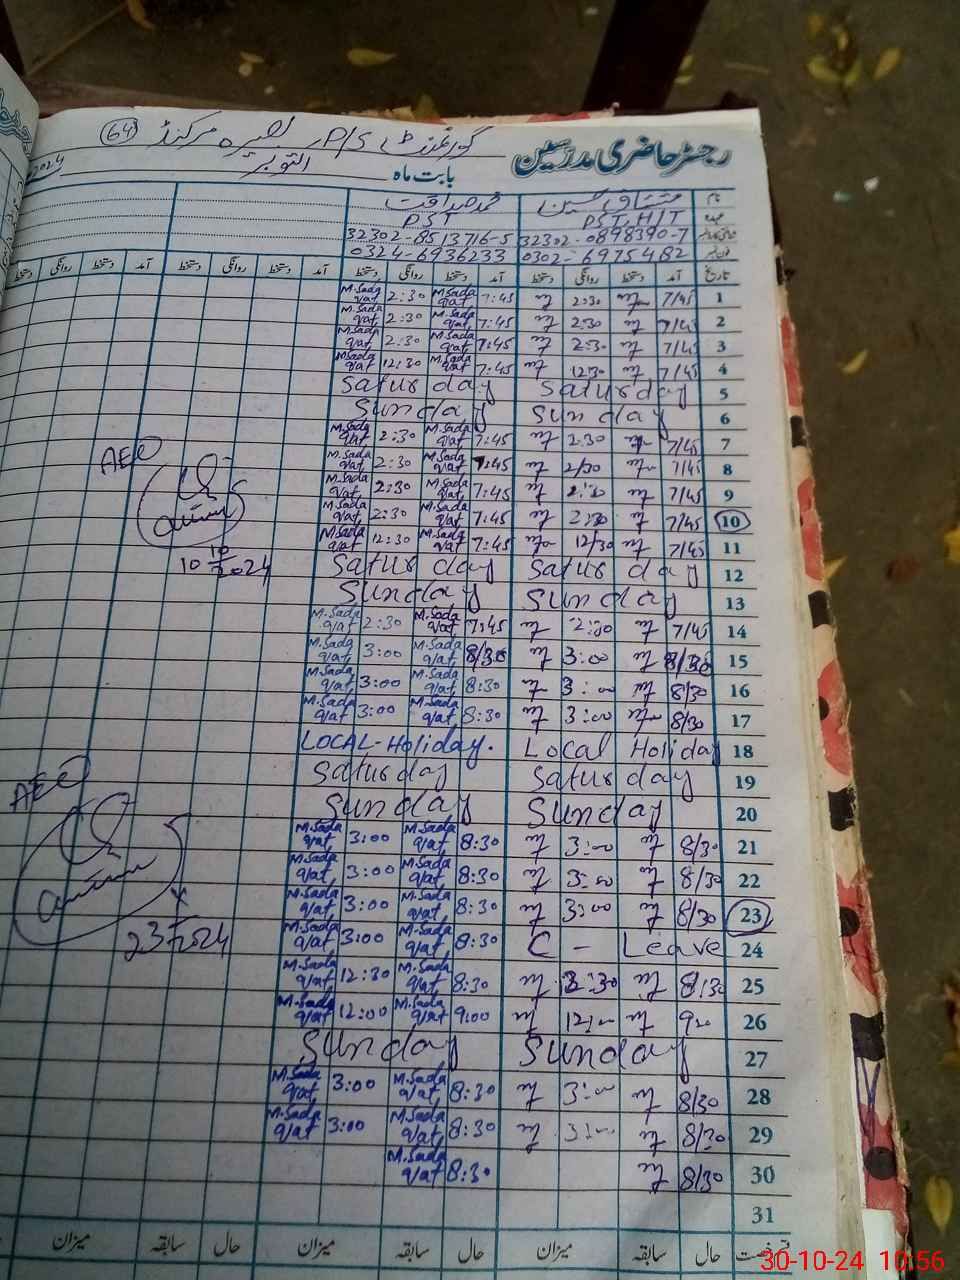 رجسٹر حاضری مدرسین گورنمنٹ P/S بصیرہ مرکنڈ (64)
بابت ماہ اکتوبر 2024
نام مشتاق حسین محمد صداقت
PST, H/T PST
32302-0898390-7 32302-8513716-5
0302-6975482 0324-6936233
تاریخ آمد دستخط روانگی دستخط آمد دستخط روانگی دستخط آمد دستخط روانگی دستخط آمد دستخط روانگی دستخط
1 7/45 2:30 7:45 M.Sadaqat 2:30 M.Sadaqat
2 7/45 2:30 7:45 M.Sadaqat 2:30 M.Sadaqat
3 7/45 2:30 7:45 M.Sadaqat 2:30 M.Sadaqat
4 7/45 12:30 7:45 M.Sadaqat 12:30 M.Sadaqat
5 Saturday Saturday
6 Sunday Sunday
7 7/45 2:30 7:45 M.Sadaqat 2:30 M.Sadaqat
8 7/45 2/30 7:45 M.Sadaqat 2:30 M.Sadaqat
AEO
9 7/45 2:30 7:45 M.Sadaqat 2:30 M.Sadaqat
10 7/45 2:30 7:45 M.Sadaqat 2:30 M.Sadaqat
11 7/45 12/30 7:45 M.Sadaqat 12:30 M.Sadaqat
12 Saturday Saturday
10 10/2024
13 Sunday Sunday
14 7/45 2:30 7:45 M.Sadaqat 2:30 M.Sadaqat
15 8/30 3:00 8/30 M.Sadaqat 3:00 M.Sadaqat
16 8/30 3:00 8:30 M.Sadaqat 3:00 M.Sadaqat
17 8/30 3:00 8:30 M.Sadaqat 3:00 M.Sadaqat
18 Local Holiday LOCAL-Holiday.
19 Saturday Saturday
20 Sunday Sunday
AEO
21 8/30 3:00 8:30 M.Sadaqat 3:00 M.Sadaqat
22 8/30 3:00 8:30 M.Sadaqat 3:00 M.Sadaqat
23 8/30 3:00 8:30 M.Sadaqat 3:00 M.Sadaqat
24 C - Leave 8:30 M.Sadaqat 3:00 M.Sadaqat
25 8:30 8:30 M.Sadaqat 12:30 M.Sadaqat
26 9:00 12:00 9:00 M.Sadaqat 12:00 M.Sadaqat
27 Sunday Sunday
28 8/30 3:00 8:30 M.Sadaqat 3:00 M.Sadaqat
29 8/30 3:00 8:30 M.Sadaqat 3:00 M.Sadaqat
30 8/30 8:30 M.Sadaqat
31
رخصت حال سابقہ میزان حال سابقہ میزان حال سابقہ میزان
30-10-24 10:56